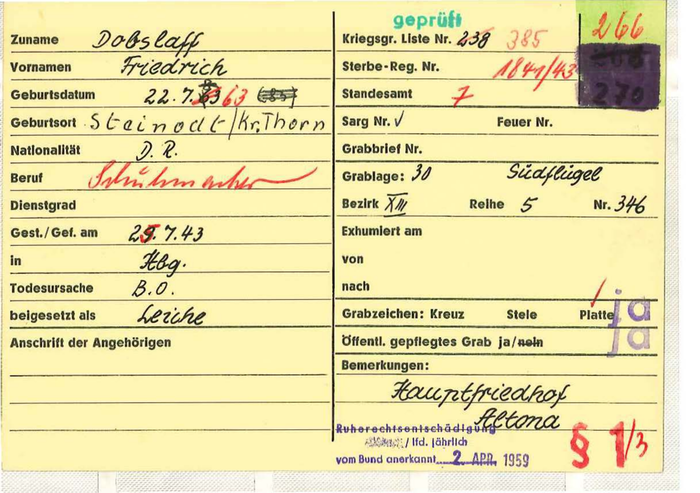 geprüft
266
Zuname Dobslaff
Kriegsgr. Liste Nr. 238 385
Vornamen Friedrich
Sterbe-Reg. Nr. 1841/43
Geburtsdatum 22.7. 63
Standesamt 7
270
Geburtsort Steinodt/Kr. Thorn
Sarg Nr. Feuer Nr.
Nationalität D. R.
Grabbrief Nr.
Beruf Schuhmacher
Grablage: 30 Südflügel
Dienstgrad
Bezirk XIII Reihe 5 Nr. 346
Gest./Gef. am 25.7.43
Exhumiert am
in Hbg.
von
Todesursache B.O.
nach
beigesetzt als Leiche
Grabzeichen: Kreuz Stele Platte ja
Anschrift der Angehörigen
Öffentl. gepflegtes Grab ja/nein ja
Bemerkungen:
Hauptfriedhof
Altona
Ruherechtsentschädigung
/ lfd. jährlich
vom Bund anerkannt 2. APR. 1959
§ 1/3